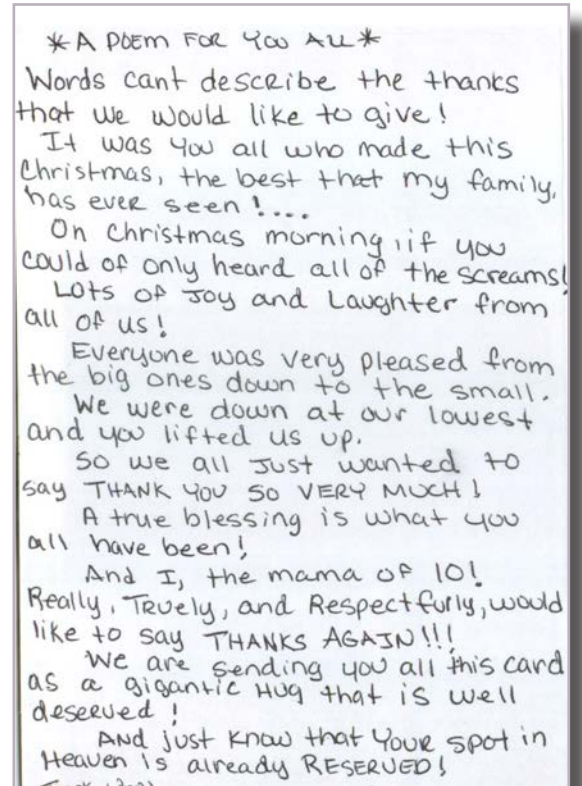 *A POEM FOR YOU ALL*
Words cant describe the thanks
that we would like to give!
It was you all who made this
Christmas, the best that my family,
has ever seen!....
On Christmas morning, if you
could of only heard all of the screams!
LOTS OF JOY and Laughter from
all OF us!
Everyone was very pleased from
the big ones down to the small.
We were down at our lowest
and you lifted us up.
SO we all Just wanted to
say THANK YOU SO VERY MUCH!
A true blessing is what you
all have been!
And I, the mama OF 10!
Really, TRuely, and Respectfurly, would
like to say THANKS AGAIN!!!
We are sending you all this card
as a gigantic HUG that is well
deserved!
AND just know that YOUR spot in
Heaven is already RESERVED!